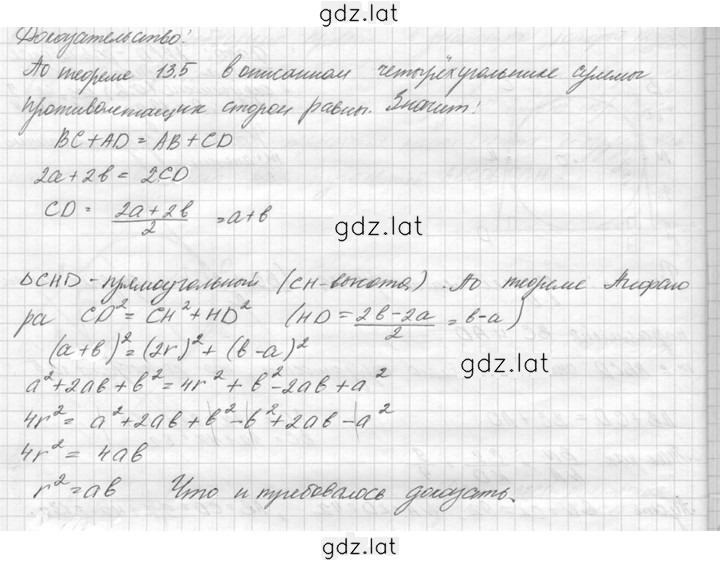 gdz.lat
Доказательство!
По теореме 13.5 в описанном четырёхугольнике суммы
противолежащих сторон равны. Значит!
BC + AD = AB + CD
2a + 2b = 2CD
CD = (2a + 2b)/2 = a + b
gdz.lat
△CHD - прямоугольный (CH - высота). По теореме Пифаго
ра CD² = CH² + HD² (HD = (2b - 2a)/2 = b - a)
(a + b)² = (2r)² + (b - a)²
gdz.lat
a² + 2ab + b² = 4r² + b² - 2ab + a²
4r² = a² + 2ab + b² - b² + 2ab - a²
4r² = 4ab
r² = ab Что и требовалось доказать.
gdz.lat